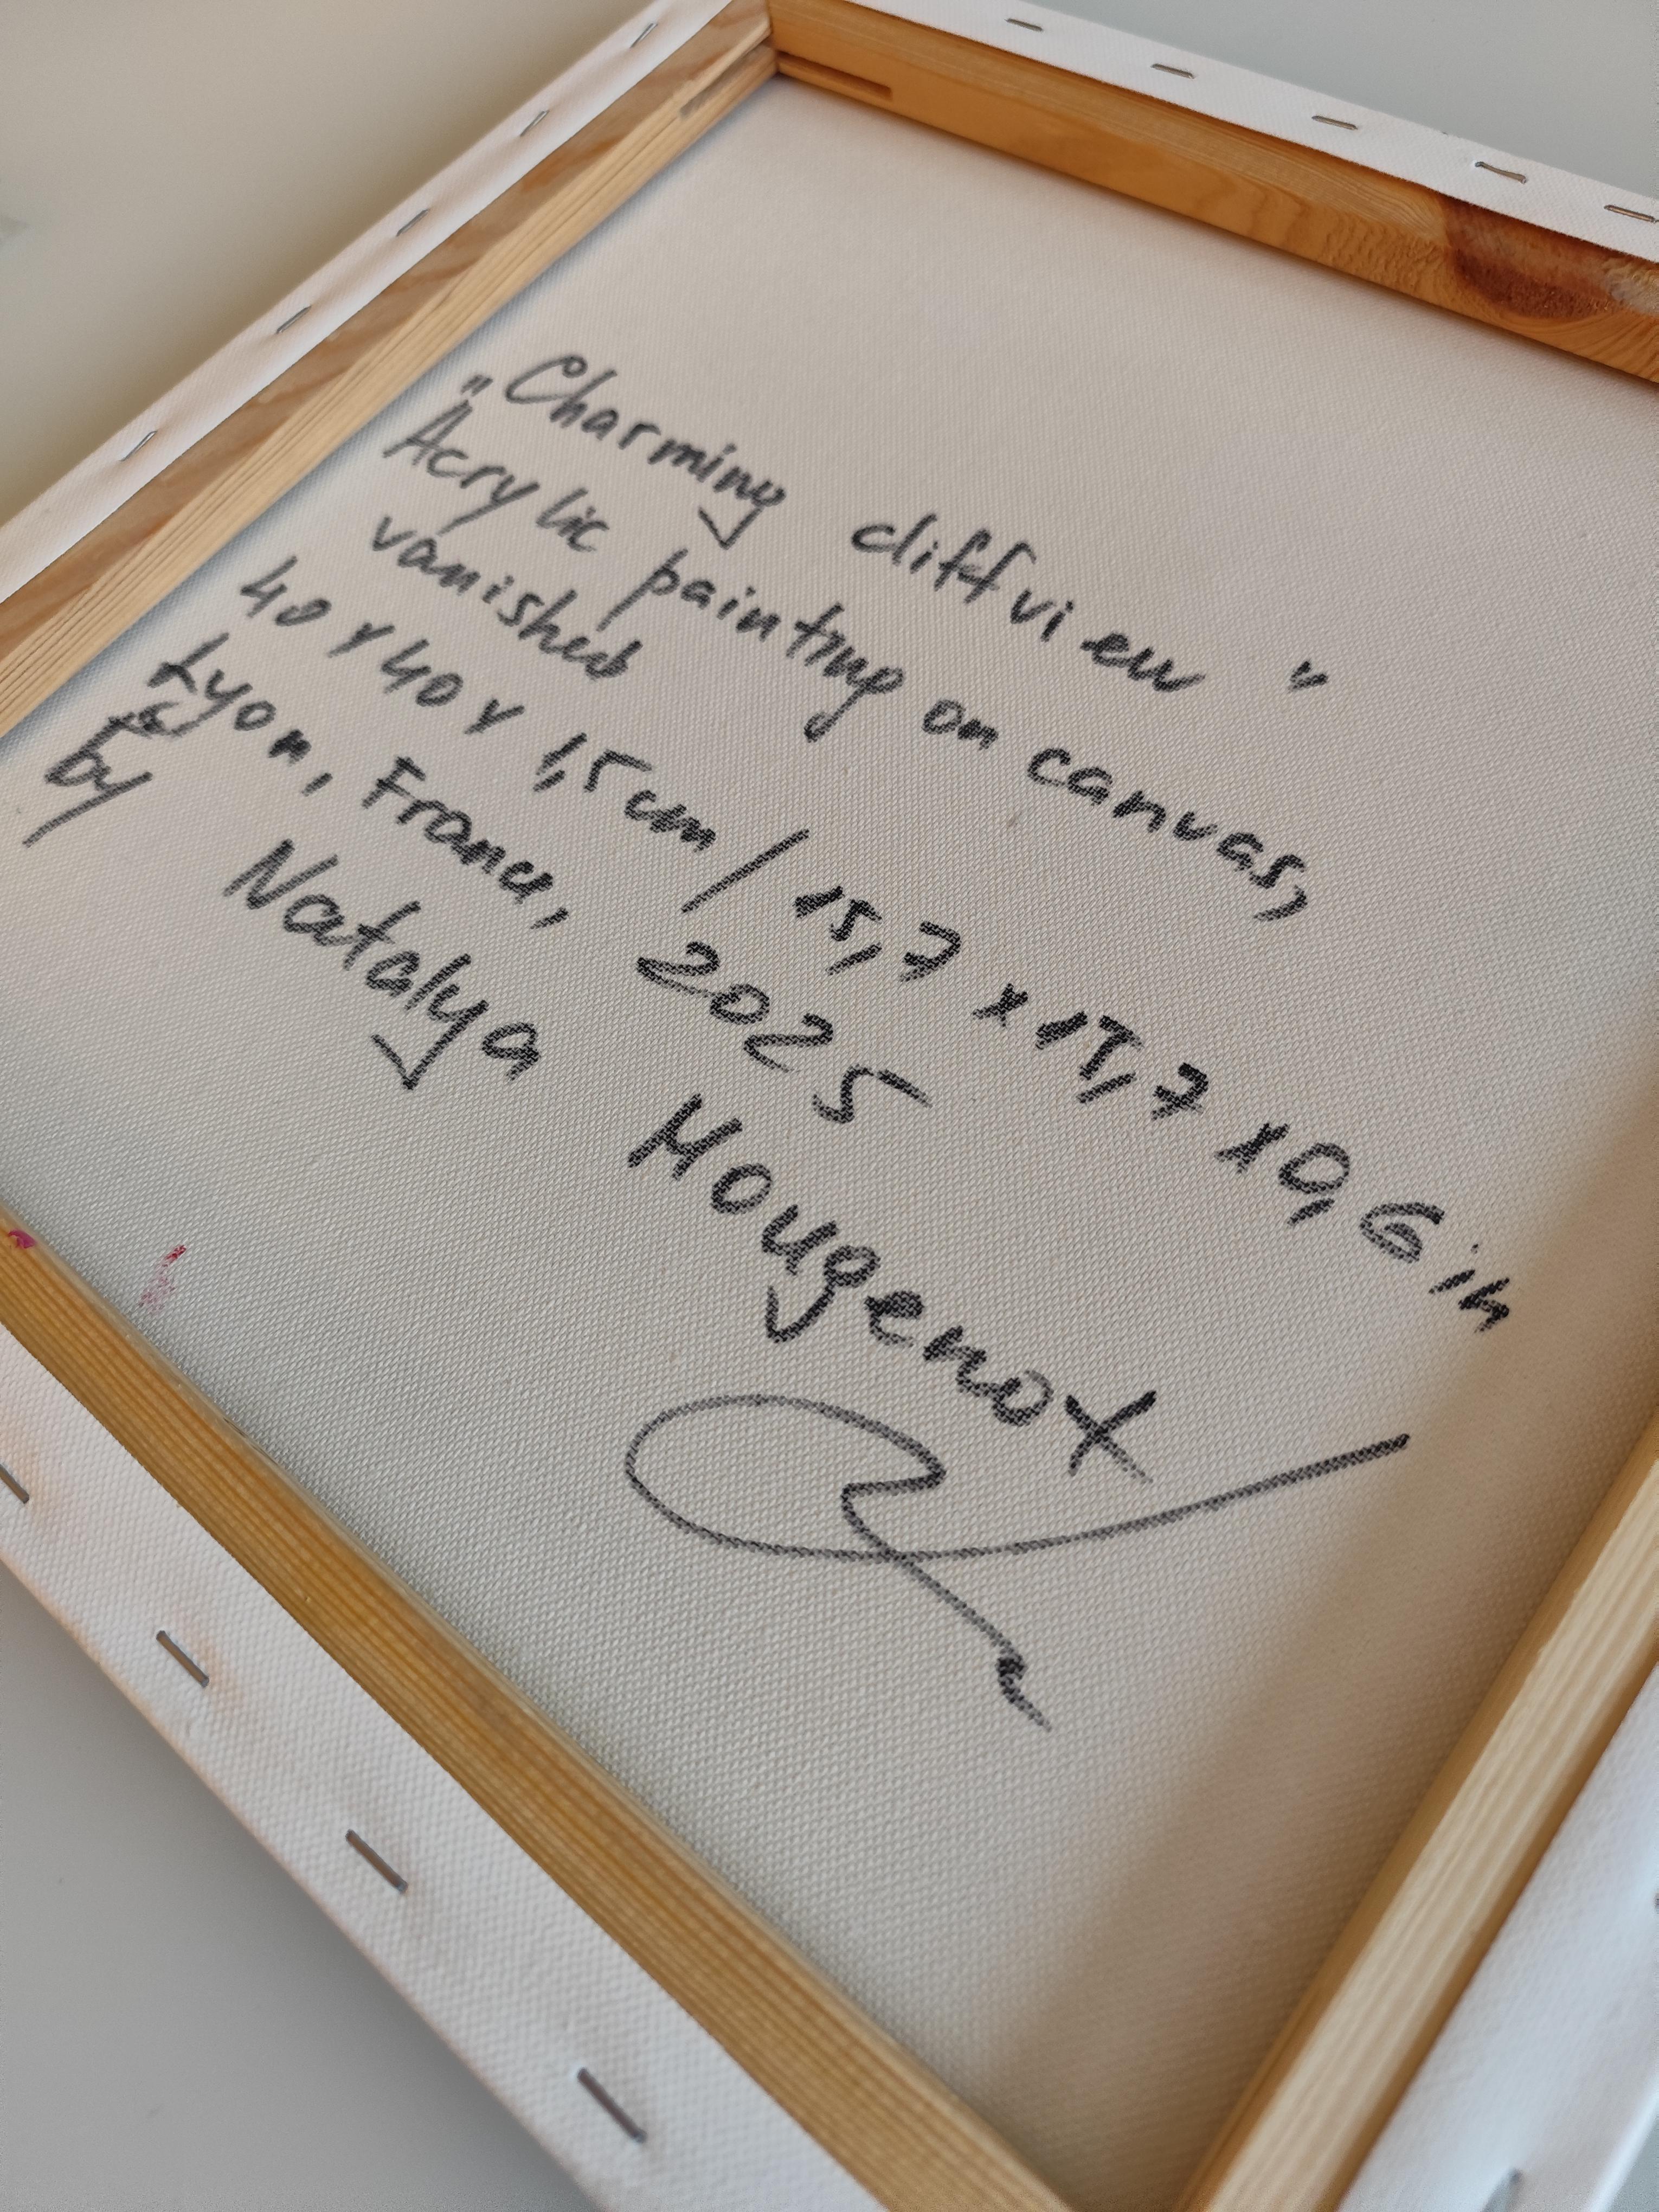 „Charming cliff view"
Acrylic painting on canvas,
vanished
40 x 40 x 1,5 cm / 15,7 x 15,7 x 0,6 in
Lyon, France, 2025
by Natalya Hougenot